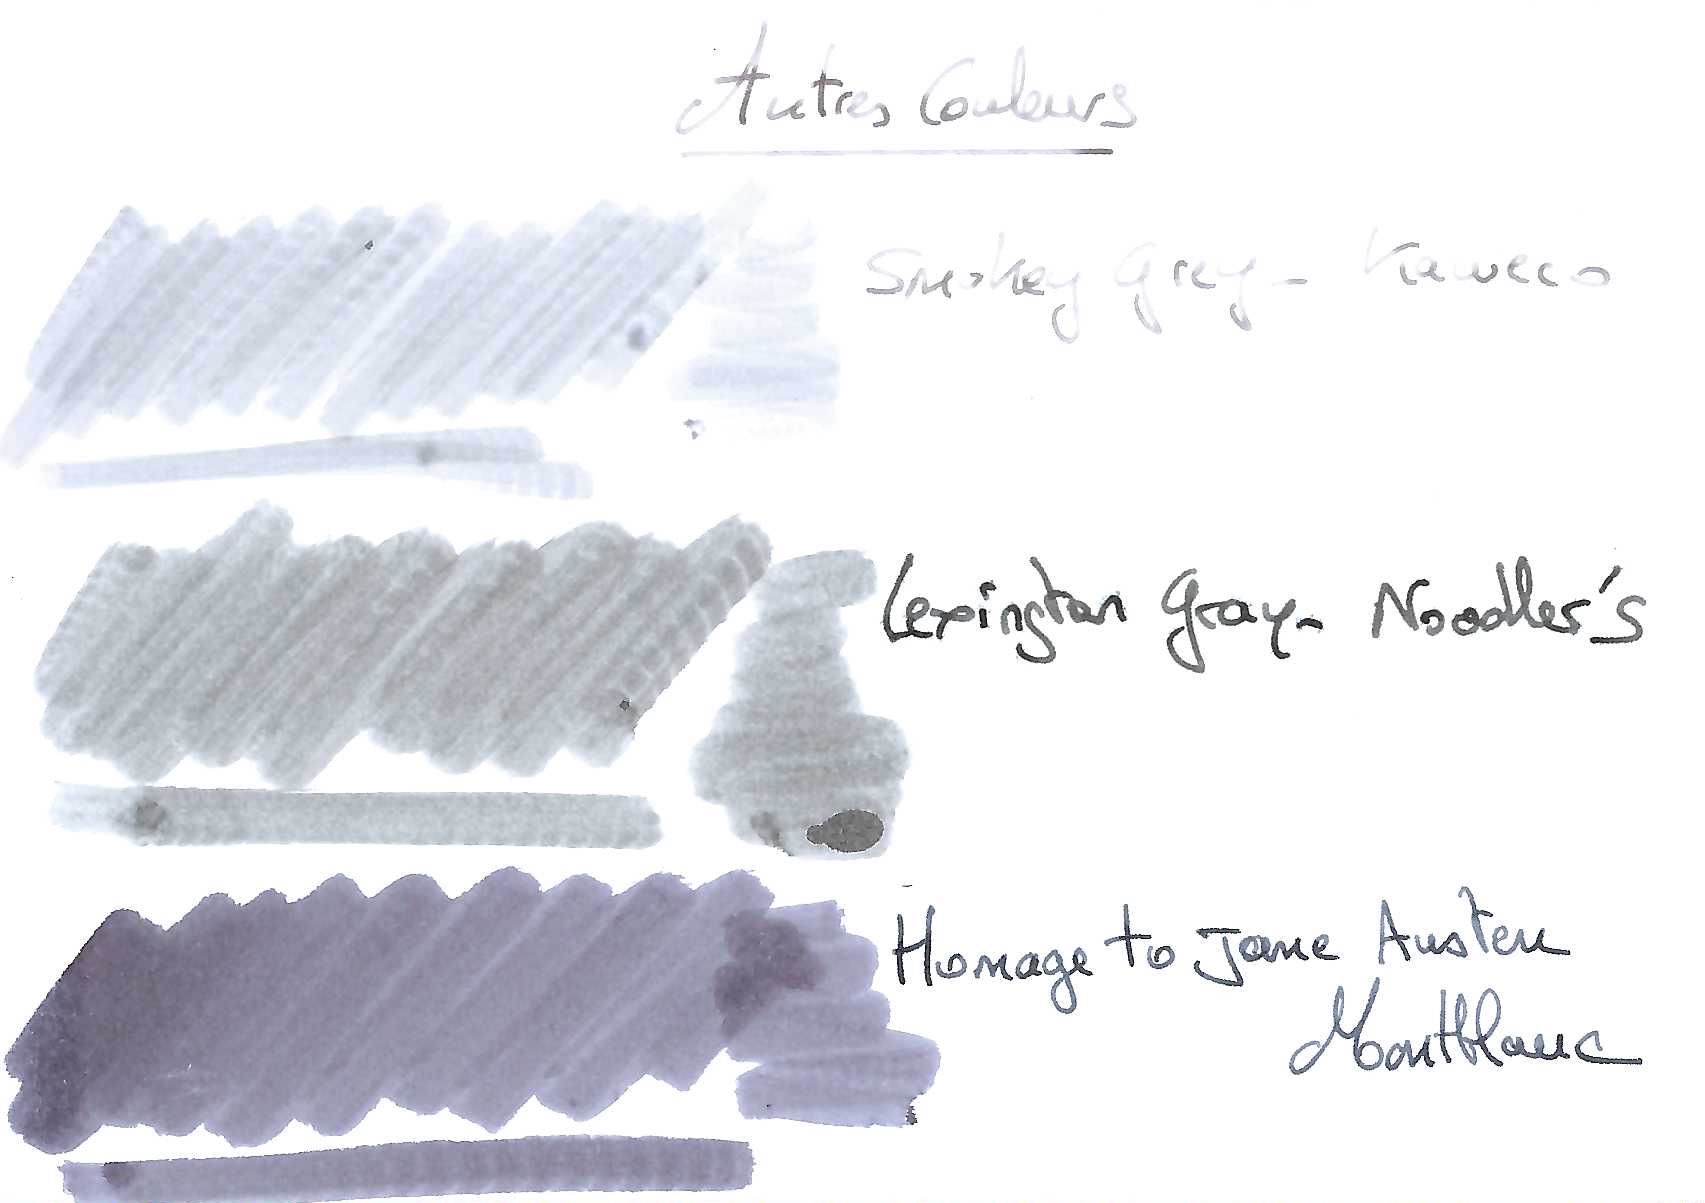 Autres Couleurs
Smokey Grey - Kaweco
Lexington Gray - Noodler's
Homage to Jane Austen
Montblanc